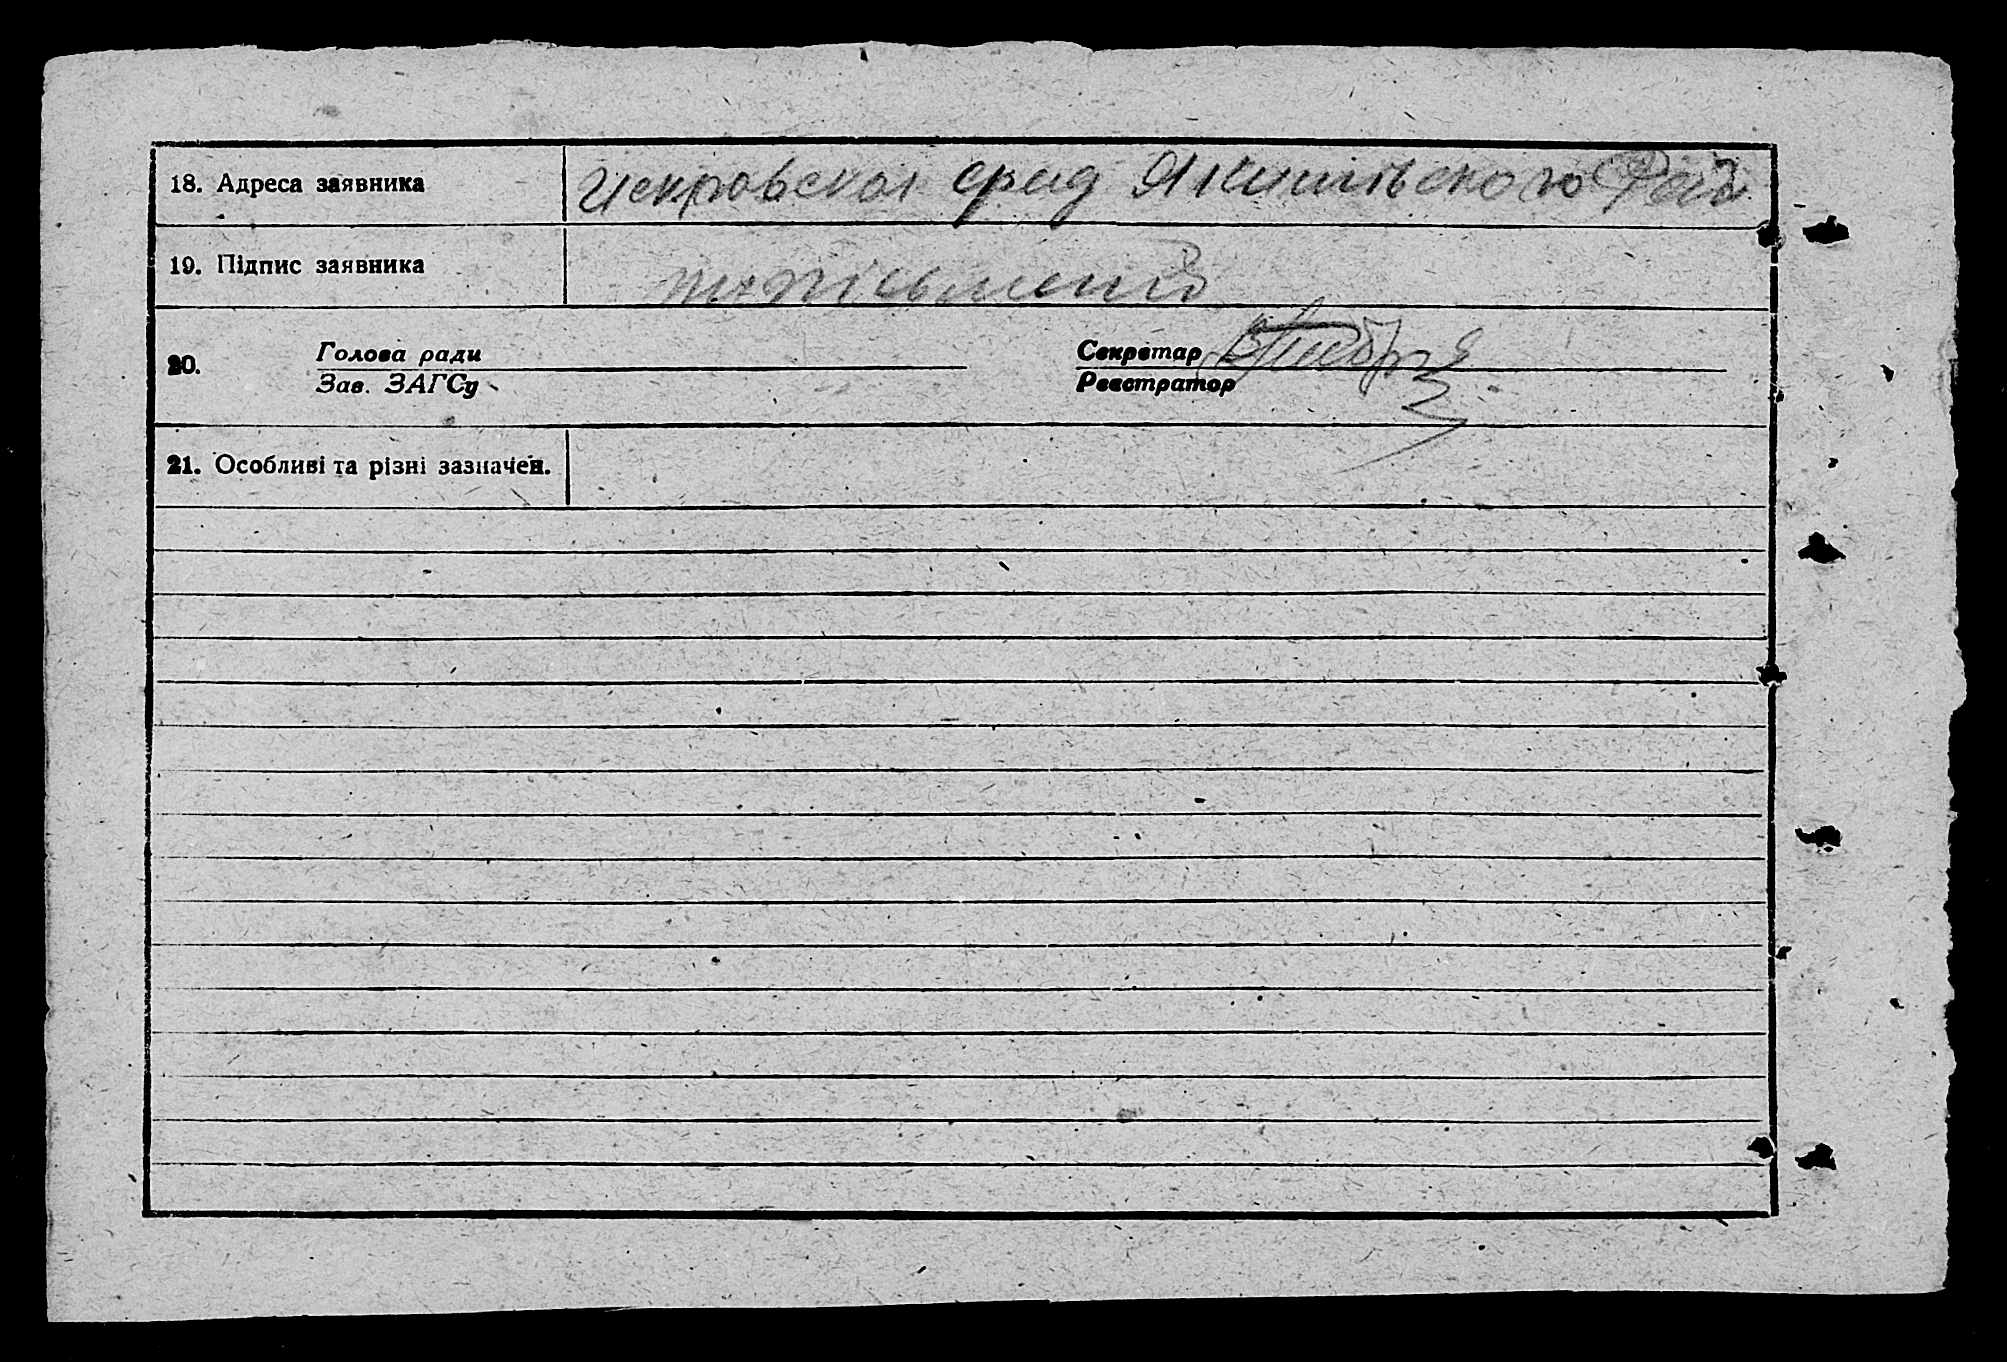 18. Адреса заявника Искровской срад Акимівского Рай
19. Підпис заявника
20. Голова ради Секретар
Зав. ЗАГСу Реєстратор
21. Особливі та різні зазначен.